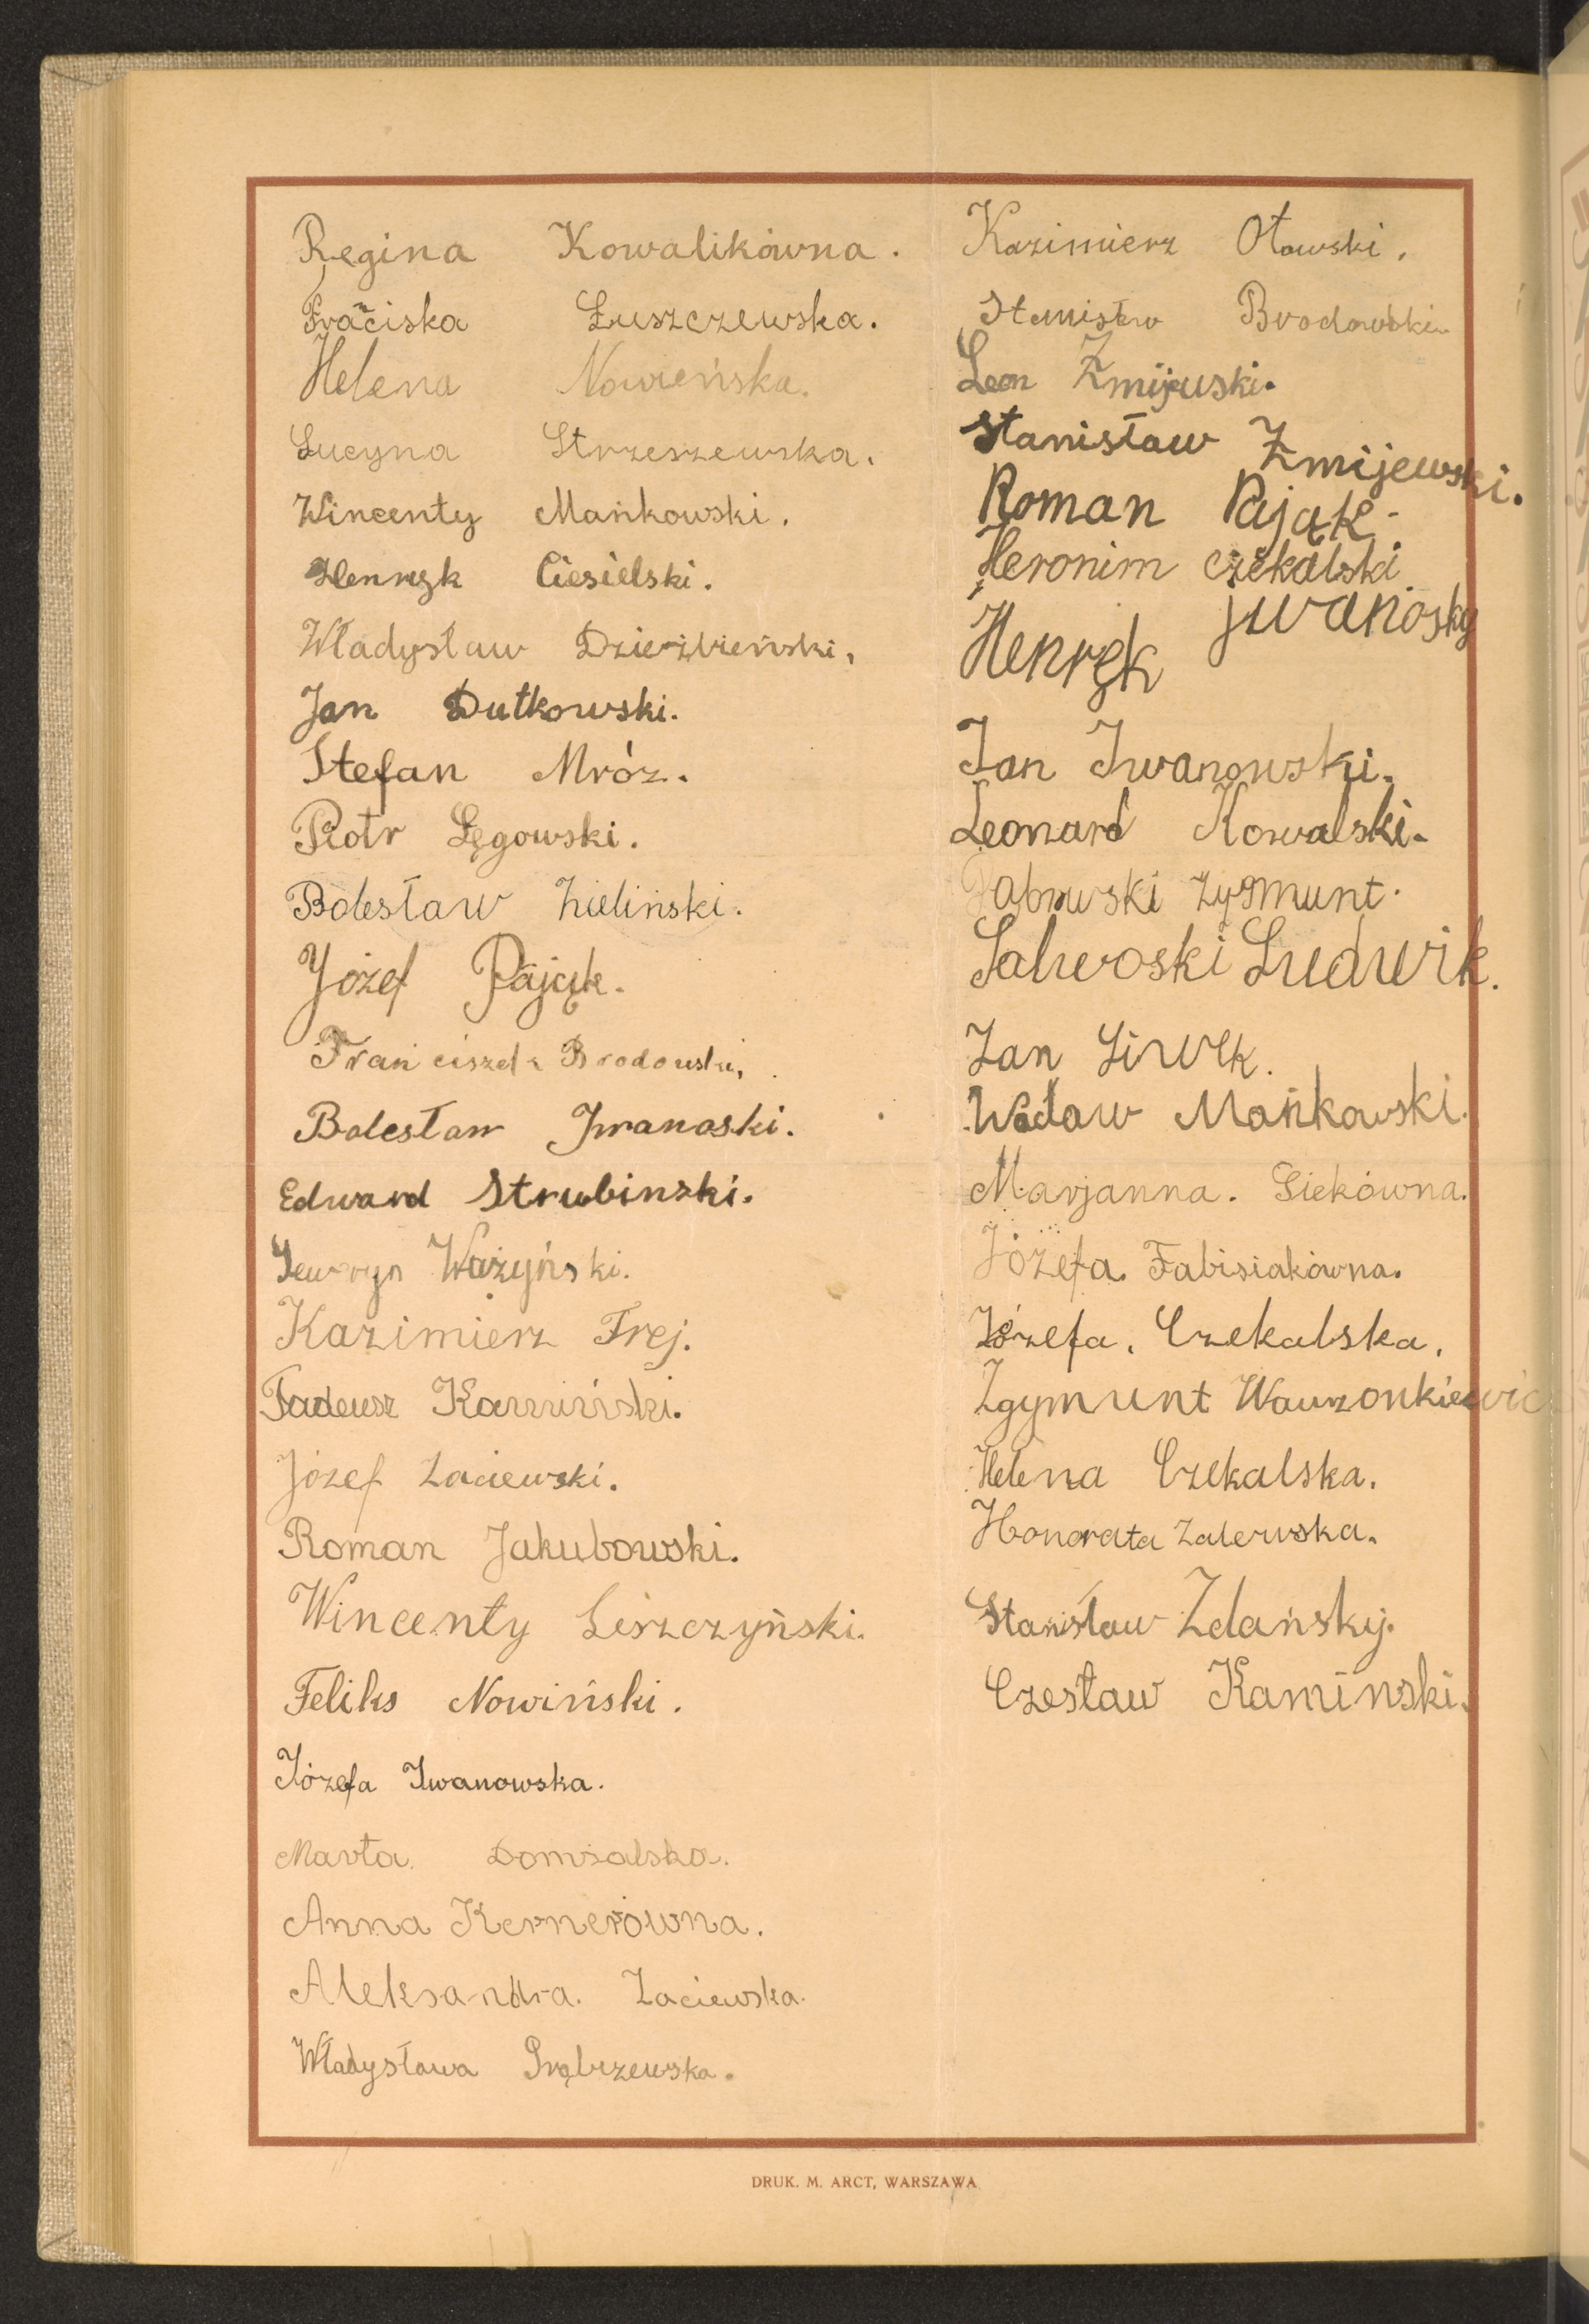 Regina Kowalikówna.
Frančiska Łuszczewska.
Helena Nowieńska.
Lucyna Strzeszewska.
Wincenty Mańkowski.
Henryk Ciesielski.
Władysław Dzierżbieński,
Jan Dutkowski.
Stefan Mróz.
Piotr Łęgowski.
Bolesław Zieliński.
Józef Pająk.
Franciszek Brodowski,
Bolesław Jwanoski.
Edward Strubinski.
Seweryn Ważyński.
Kazimierz Frej.
Tadeusz Kamiński.
Józef Zaciewski.
Roman Jakubowski.
Wincenty Leszczyński.
Feliks Nowiński.
Józefa Iwanowska.
Marta. Domżalska.
Anna Kernerówna.
Aleksandra. Zaciewska.
Władysława
Kazimierz Otowski.
Stanisław Brodowski.
Leon Żmijewski.
Stanisław Żmijewski.
Roman Pająk.
Heronim czekalski
Henryk jwanosky
Jan Iwanowski.
Leonard Kowalski.
Zygmunt.
Ludwik.
Jan Liwek.
Wacław Mańkowski.
Marjanna. Siekówna.
Józefa. Fabisiakówna.
Józefa. Czekalska.
Zgymunt Wawrzonkiewic
Helena Czekalska.
Honorata Zalewska.
Stanisław Zdańskij.
Czesław Kaminski.
DRUK. M. ARCT, WARSZAWA